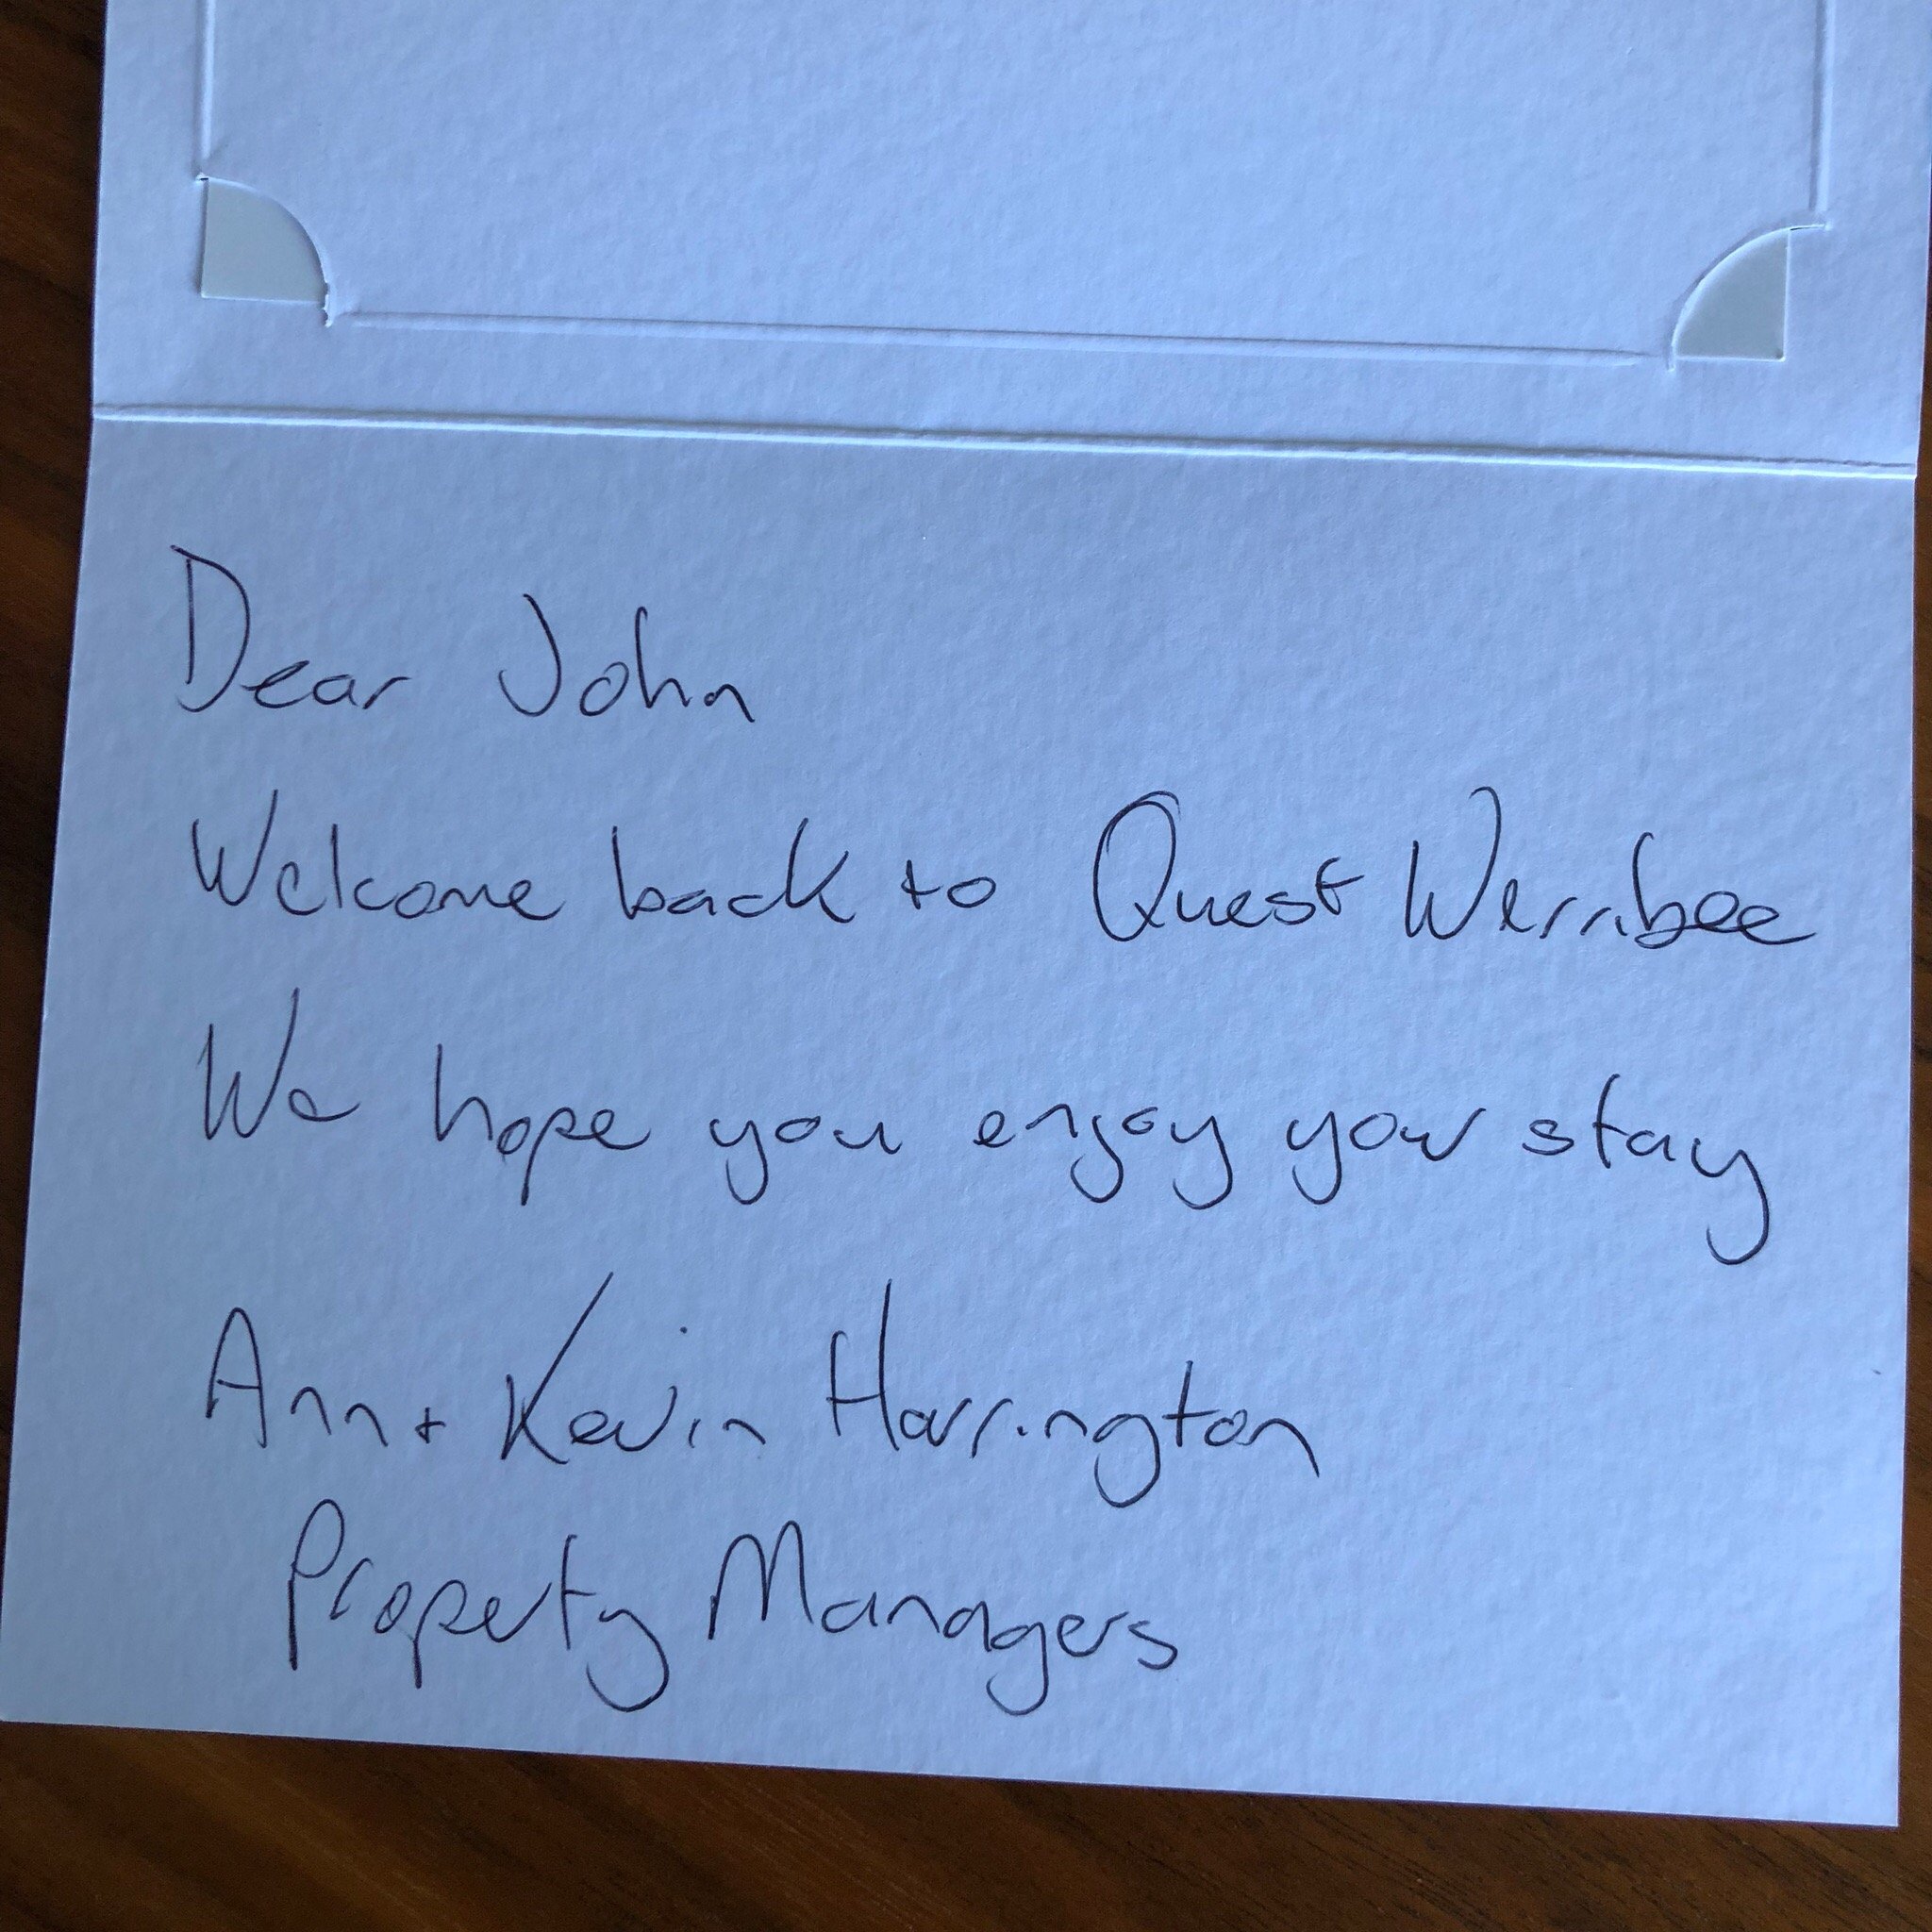 Dear John
Welcome back to Quest Werribee
We hope you enjoy your stay
Ann + Kevin Harrington
Property Managers